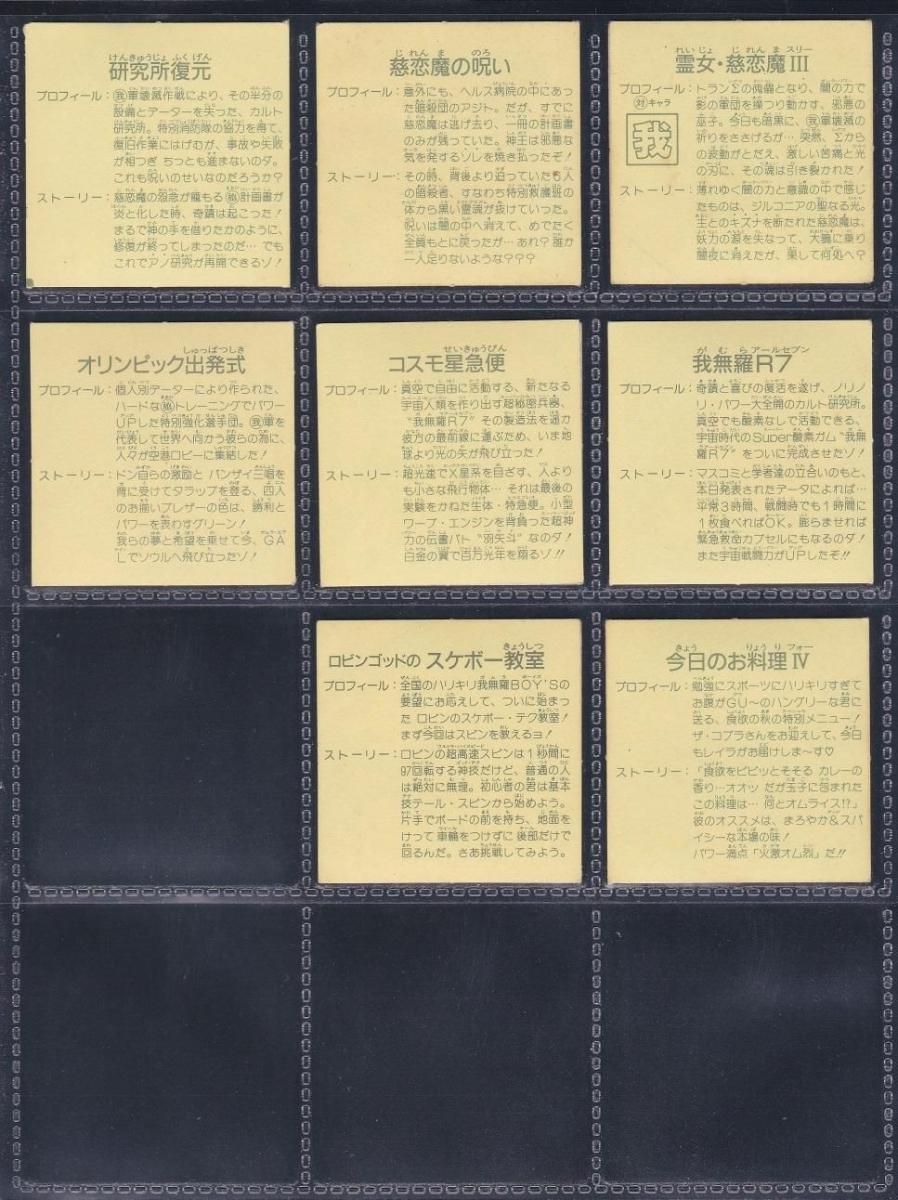 研究所復元
プロフィール：㊙軍壊滅作戦により、その半分の
設備とデーターを失った、カルト
研究所。特別消防隊の協力を得て、
復旧作業にはげむが、事故や失敗
が相つぎ ちっとも進まないのダ。
これも呪いのせいなのだろうか？
ストーリー：慈恋魔の怨念が籠もる㊙計画書が
炎と化した時、奇蹟は起こった！
まるで神の手を借りたかのように、
修復が終ってしまったのだ… でも
これでアノ研究が再開できるゾ！
慈恋魔の呪い
プロフィール：意外にも、ヘルス病院の中にあっ
た暗殺団のアジト。だが、すでに
慈恋魔は逃げ去り、一冊の計画書
のみが残っていた。神主は邪悪な
気を発するソレを焼き払ったぞ！
ストーリー：その時、背後より迫っていた5人
の暗殺者、すなわち特別救護班の
体から黒い霊魂が抜けていった。
呪いは闇の中へ消えて、めでたく
全員もとに戻ったが… あれ？誰か
一人足りないような？？？
霊女・慈恋魔III
プロフィール：トランΣの傀儡となり、闇の力で
対キャラ
我
影の軍団を操つり動かす、邪悪の
巫子。今日も暗黒に、我軍壊滅の
祈りをささげるが… 突然、Σから
の波動がとだえ、激しい苦痛と光
の刃に、その魂は引き裂かれた！
ストーリー：薄れゆく闇の力と意識の中で感じ
たものは、ジルコニアの聖なる光。
主とのキズナを断たれた慈恋魔は、
妖力の源を失なって、大鵬に乗り
闇夜に消えたが、果して何処へ？
オリンピック出発式
プロフィール：個人別データーにより作られた、
ハードな㊙トレーニングでパワー
UPした特別強化選手団。我軍を
代表して世界へ向かう彼らの為に、
人々が空港ロビーに集結した！
ストーリー：ドン自らの激励と バンザイ三唱を
背に受けてタラップを登る、四人
のお揃いブレザーの色は、勝利と
パワーを表わすグリーン！
我らの夢と希望を乗せて今、GA
Lでソウルへ飛び立ったゾ！
コスモ星急便
プロフィール：真空で自由に活動する、新たなる
宇宙人類を作り出す超秘密兵器、
“我無羅R7” その製造法を遥か
彼方の最前線に運ぶため、いま地
球より光の矢が飛び立った！
ストーリー：超光速でX星系を目ざす、人より
も小さな飛行物体… それは最後の
実験をかねた生体・特急便。小型
ワープ・エンジンを背負った超神
力の伝書バト “羽矢斗” なのダ！
白金の翼で百万光年を翔るゾ!!
我無羅R7
プロフィール：奇蹟と喜びの復活を遂げ、ノリノ
リ・パワー大全開のカルト研究所。
真空でも酸素なしで活動できる、
宇宙時代のSuper酸素ガム “我無
羅R7” をついに完成させたゾ！
ストーリー：マスコミと学者達の立合いのもと、
本日発表されたデータによれば…
平常3時間、戦闘時でも1時間に
1枚食べればOK。膨らませれば
緊急救命カプセルにもなるのダ！
また宇宙戦闘力がUPしたぞ!!
ロビンゴッドの スケボー教室
プロフィール：全国のハリキリ我無羅BOY'Sの
要望にお応えして、ついに始まっ
た ロビンのスケボー・テク教室！
まず今回はスピンを教えるヨ！
ストーリー：ロビンの超高速スピンは1秒間に
97回転する神技だけど、普通の人
は絶対に無理。初心者の君は基本
技テール・スピンから始めよう。
片手でボードの前を持ち、地面を
けって 車輪をつけずに 後部だけで
回るんだ。さあ挑戦してみよう。
今日のお料理IV
プロフィール：勉強にスポーツにハリキリすぎて
お腹がGU～のハングリーな君に
送る、食欲の秋の特別メニュー！
ザ・コブラさんをお迎えして、今日
もレイラがお届けしま～す♡
ストーリー：「食欲をビビッとそそる カレーの
香り…オオッ だが玉子に包まれた
この料理は… 何とオムライス!?」
彼のオススメは、まろやか&スパ
イシーな本場の味！
パワー満点「火激オム烈」だ!!